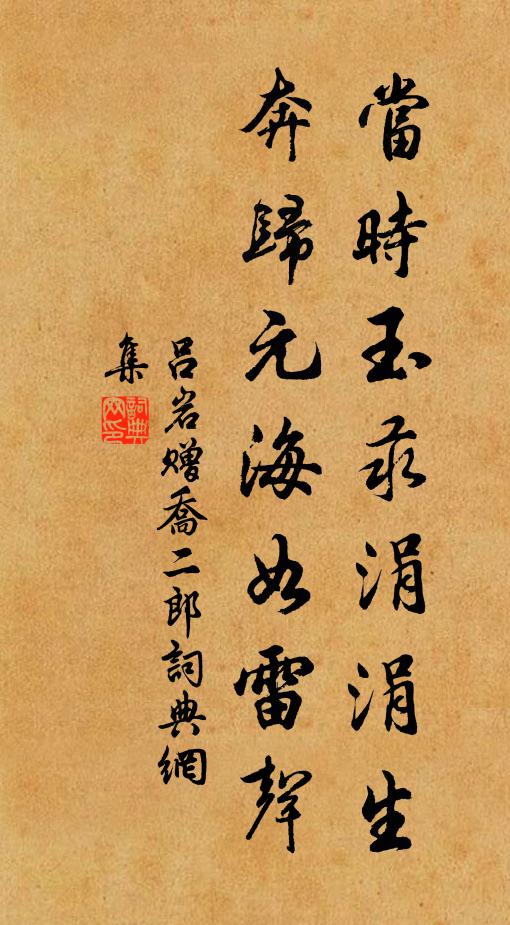 當時玉蕊涓涓生
奔歸元海如雷聲
呂岩赠喬二郎詞典網
集
詞典
网印